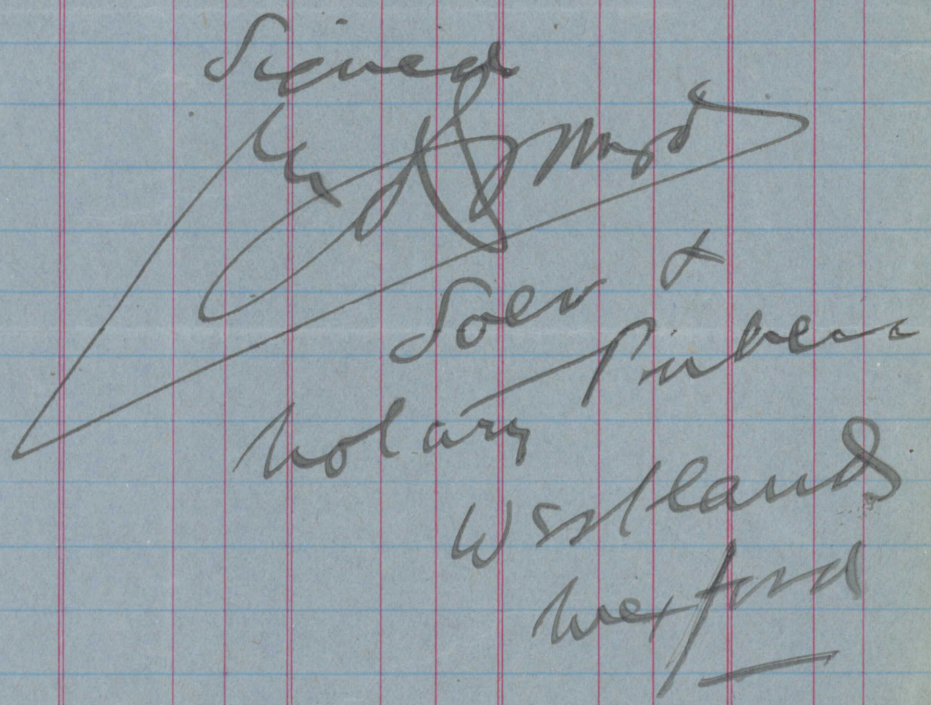 Signed
Solr &
Notary Public
Westlands
Wexford